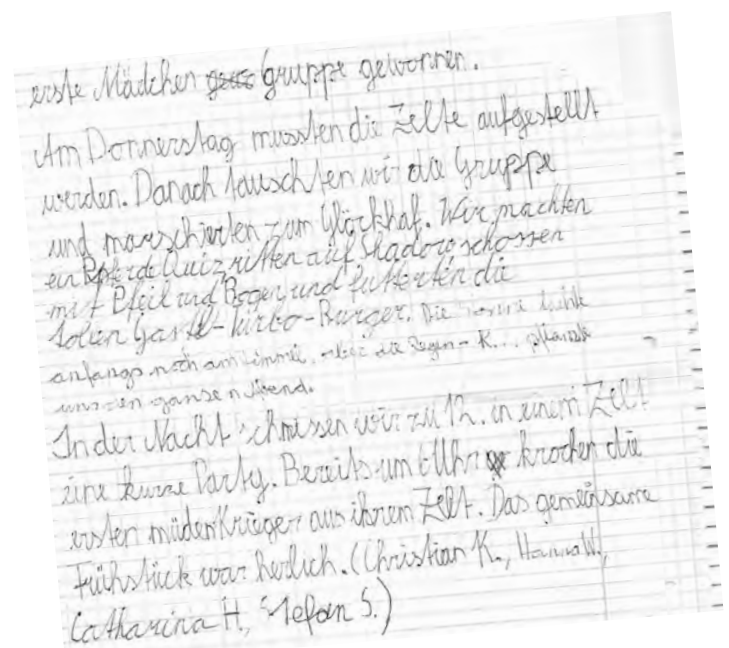 erste Mädchen Gruppe gewonnen.
Am Donnerstag mussten die Zelte aufgestellt
werden. Danach tauschten wir die Gruppe
und marschierten zum Glöckhof. Wir machten
ein Pferde Quiz, ritten auf Shadow schossen
mit Pfeil und Bogen und futterten die
tollen Gastl-Türbo-Burger. Die Sonne lachte
anfangs noch am Himmel, aber die Regen-K...
uns den ganzen Abend.
In der Nacht schmissen wir zu 12. in einem Zelt
eine kurze Party. Bereits um 6 Uhr krochen die
ersten müden Krieger aus ihrem Zelt. Das gemeinsame
Frühstück war herlich. (Christian K., Hanna W.,
Catharina H., Stefan S.)